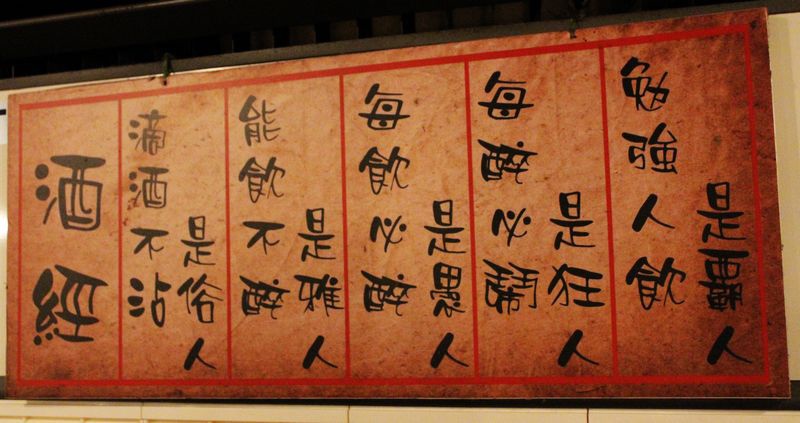 酒經
滴酒不沾
是俗人
能飲不醉
是雅人
每飲必醉
是愚人
每醉必鬧
是狂人
勉強人飲
是霸人